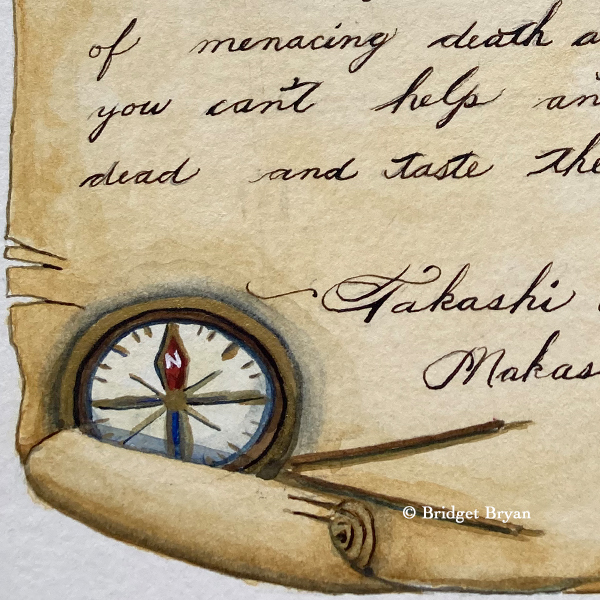 of menacing death a
you can't help an
dead and taste the
Takashi
Makas
N
© Bridget Bryan